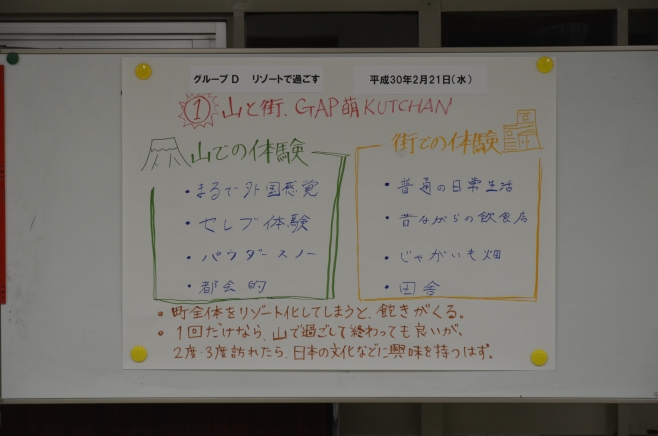 グループD　リゾートで過ごす
平成30年2月21日(水)
① 山と街、GAP萌KUTCHAN
山での体験
・まるで外国感覚
・セレブ体験
・パウダースノー
・都会的
街での体験
・普通の日常生活
・昔ながらの飲食店
・じゃがいも畑
・田舎
・町全体をリゾート化してしまうと、飽きがくる。
・1回だけなら、山で過ごして終わっても良いが、
2度・3度訪れたら、日本の文化などに興味を持つはず。